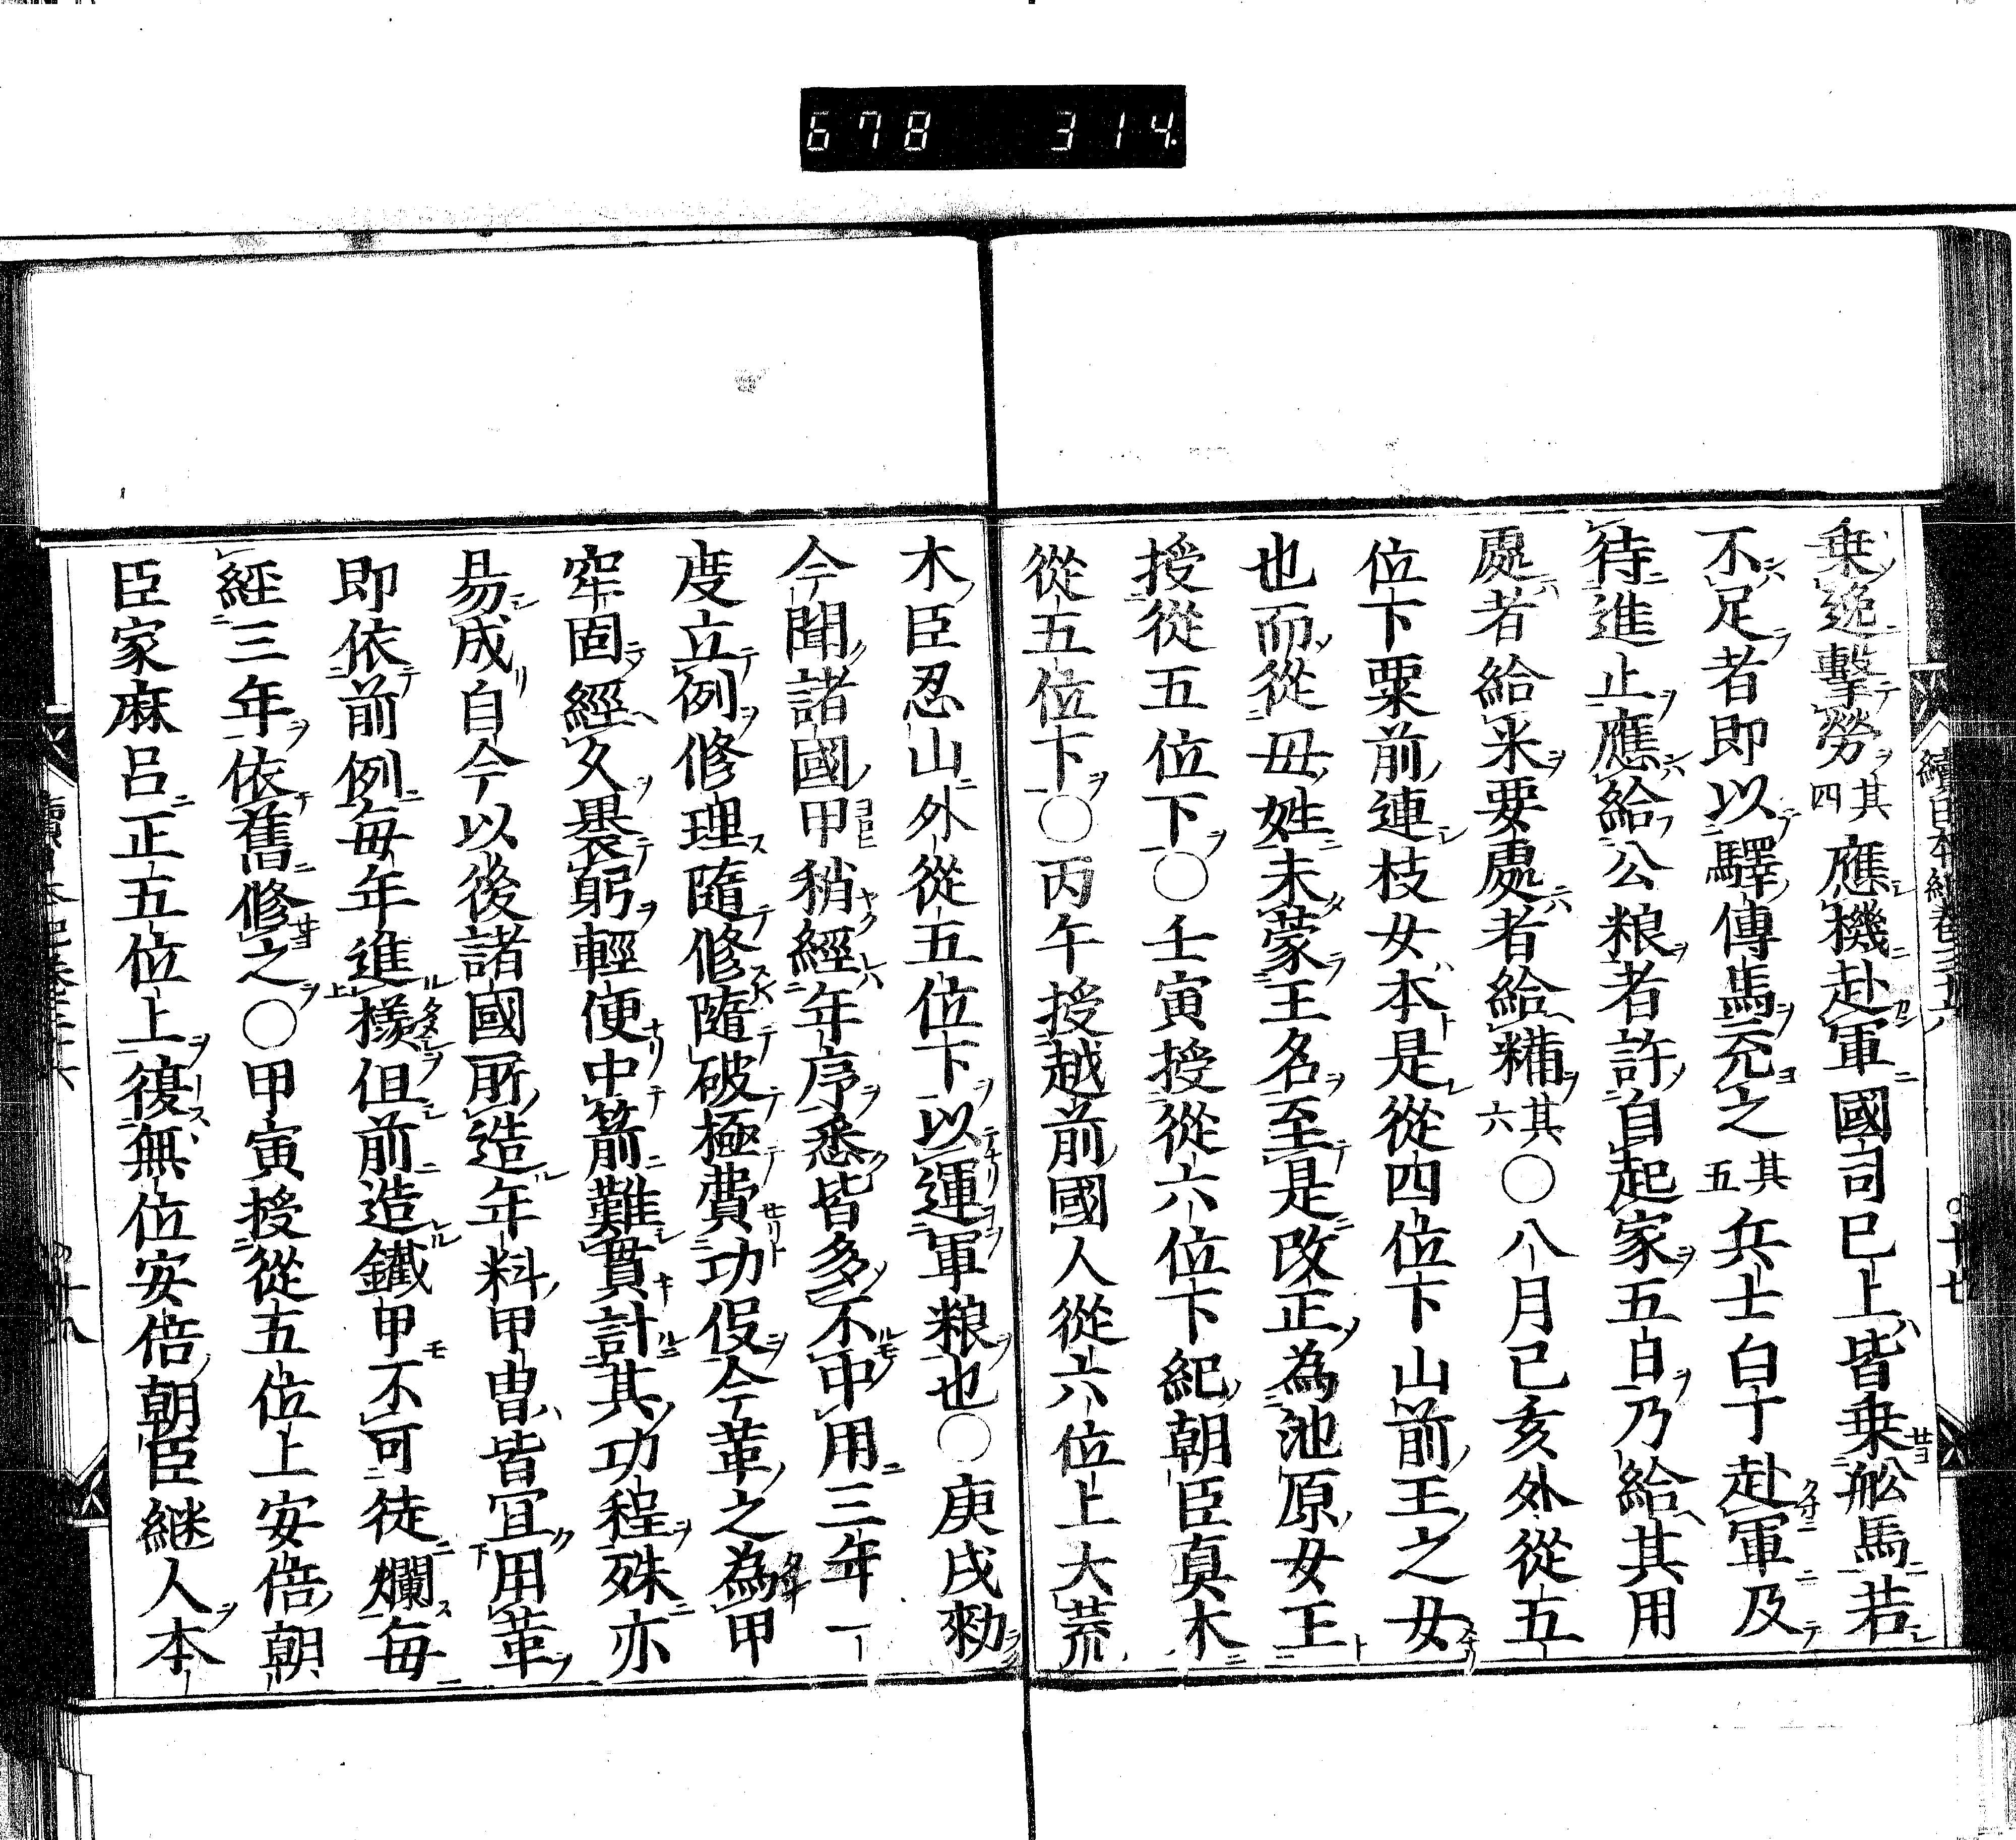 678 314
乗逸擊勞其四應機赴軍國司巳上皆乗舩馬若
不足者即以驛傳馬充之其五兵士白丁赴軍及
待進止應給公粮者許自起家五日乃給其用
處者給米要處者給糒其六○八月己亥外從五
位下粟前連枝女本是從四位下山前王之女
也而從母姓未蒙王名至是改正為池原女王
授從五位下○壬寅授從六位下紀朝臣真木
從五位下○丙午授越前國人從六位上大荒
木臣忍山外從五位下以運軍粮也○庚戌勑
今聞諸國甲稍經年序悉皆多不中用三年一
度立例修理隨修隨破極費功役今革之為甲
牢固經久襲躬輕便中箭難貫計其功程殊亦
易成自今以後諸國所造年料甲冑皆宜用革
即依前例毎年進様但前造鐵甲不可徒爛毎
經三年依舊修之○甲寅授從五位上安倍朝
臣家麻呂正五位上復無位安倍朝臣継人本